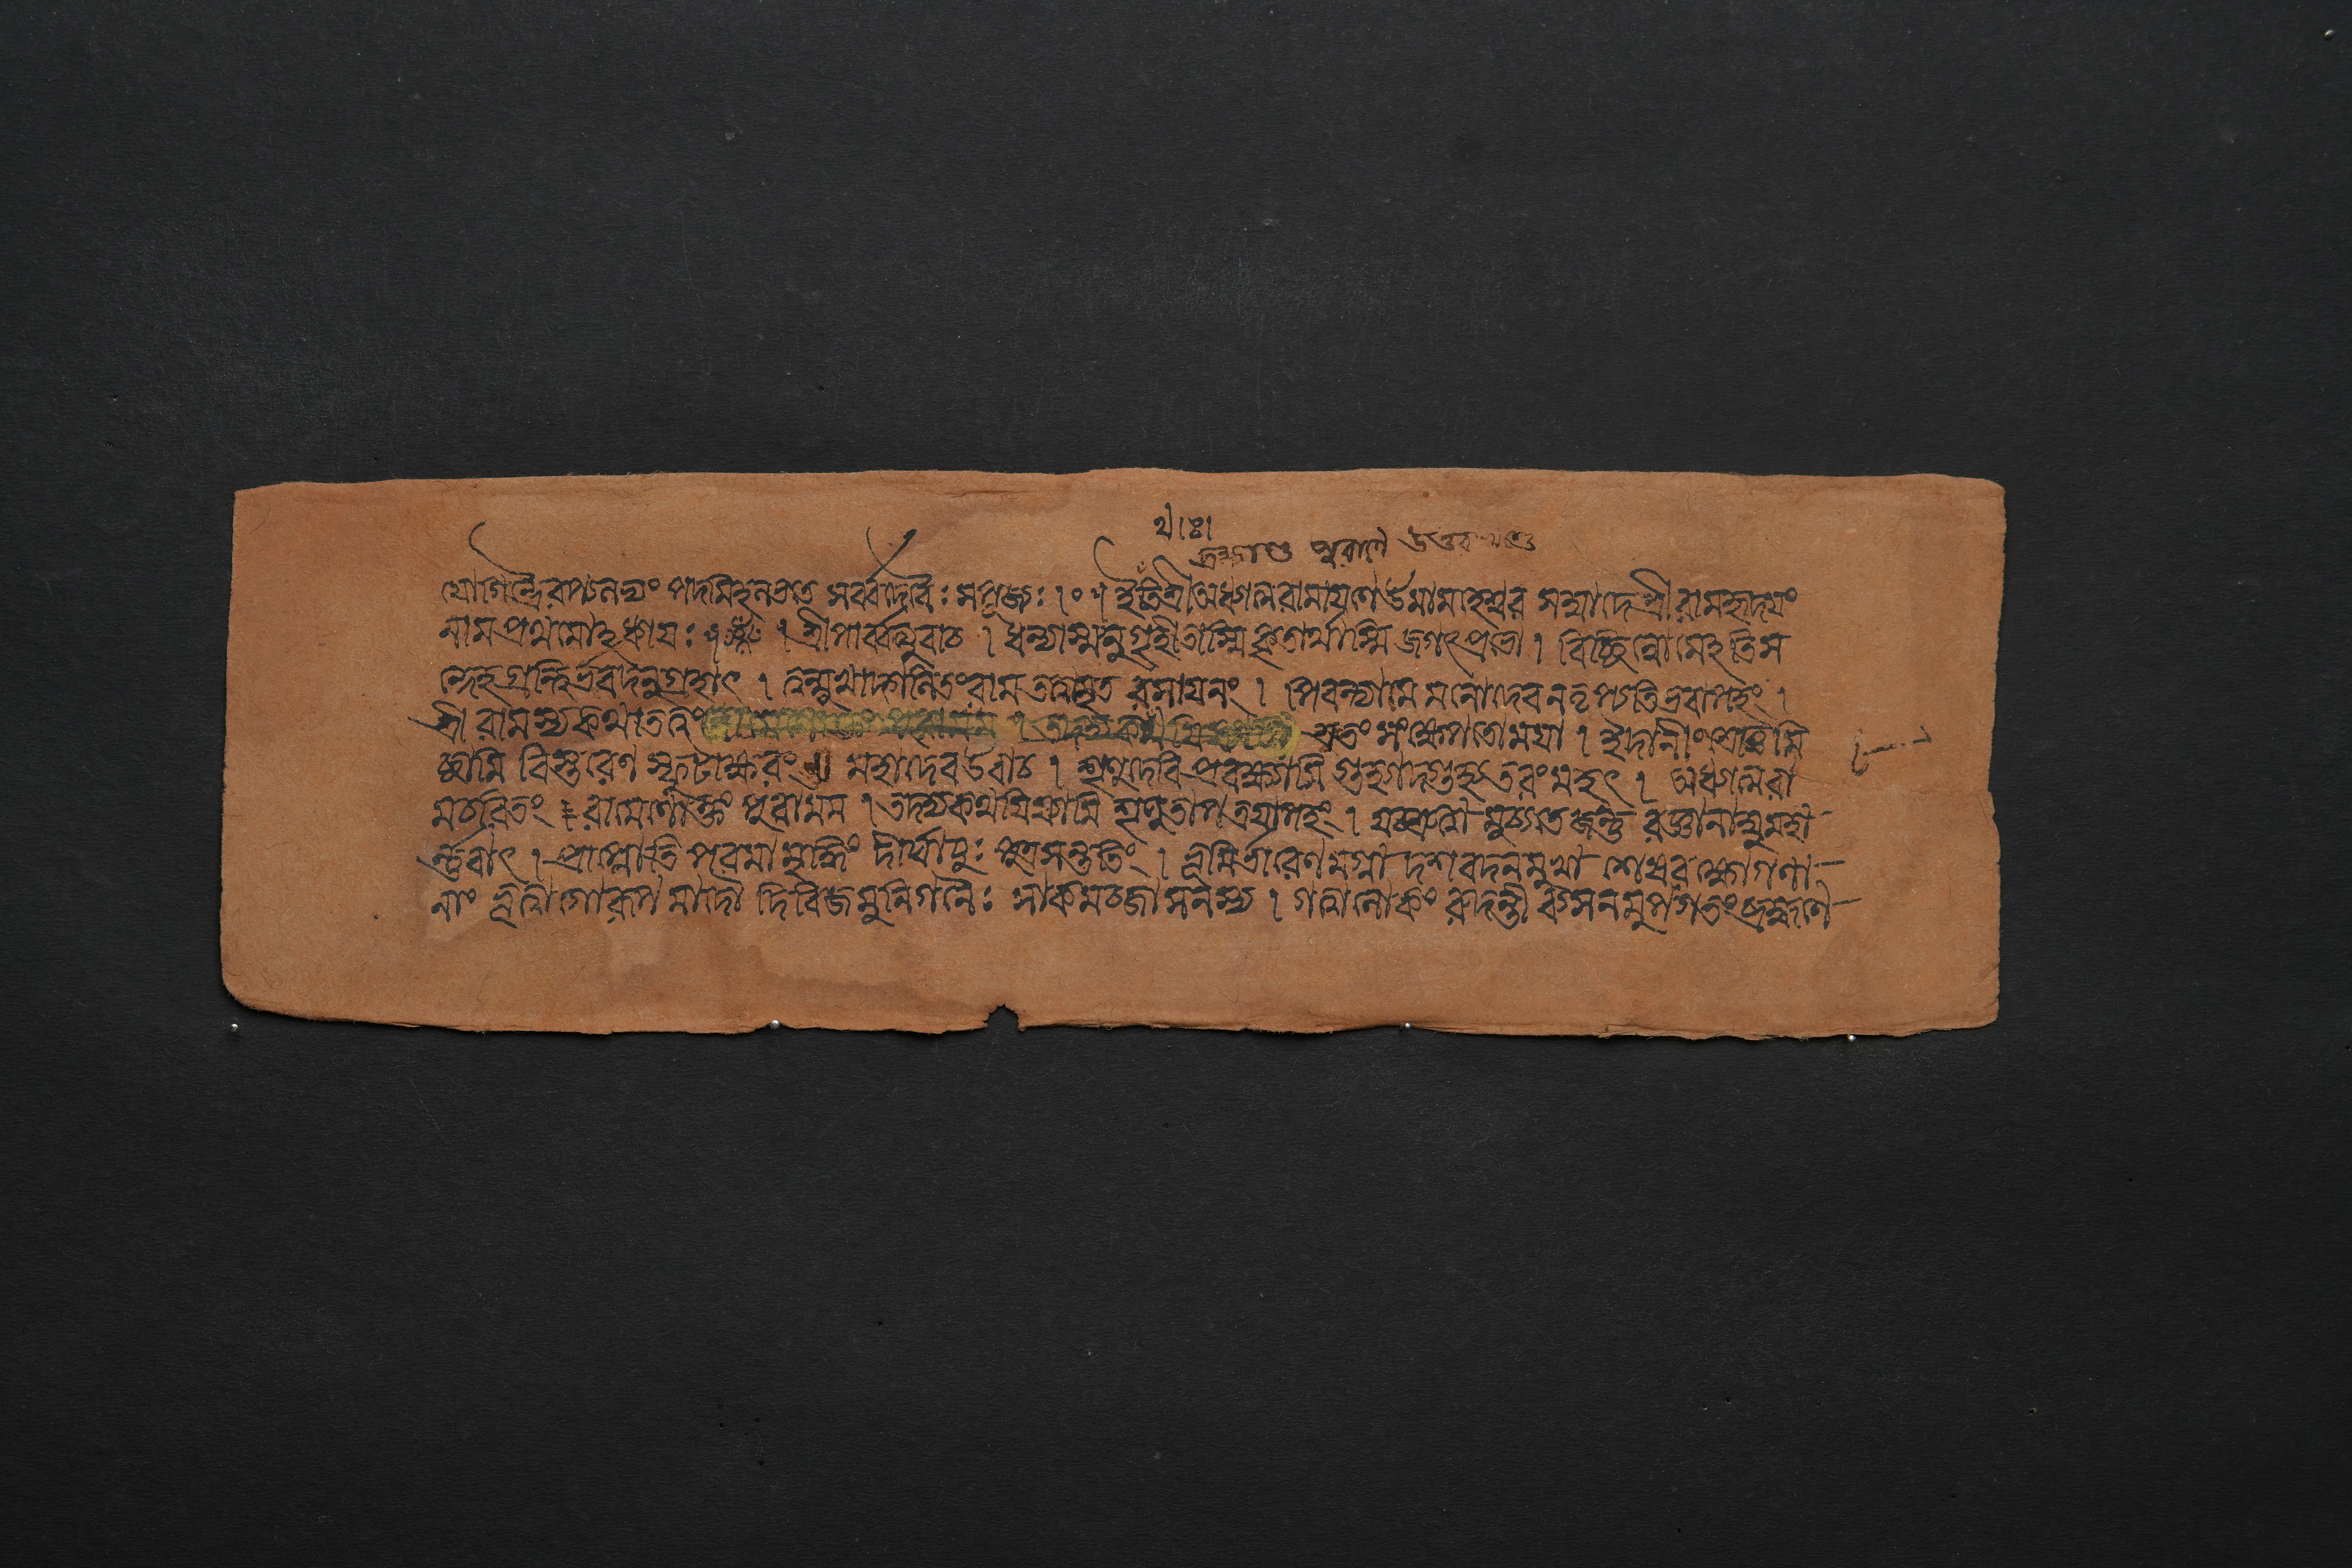 ব্রহ্মাণ্ড পুরাণে উত্তরখণ্ডে
যোগিন্দ্রৈরপ্যলভ্যং পদমিহলভতে সর্ব্বদেবৈঃ সপূজ্যঃ ।০॥ ইতিশ্রীঅধ্যাত্মরামায়ণে উমামাহেশ্বর সম্বাদে শ্রীরামহৃদয়ং
নাম প্রথমোঽধ্যায়ঃ ॥ । শ্রীপার্ব্বত্যুবাচ । ধন্যাস্ম্যনুগৃহীতাস্মি কৃতার্থাস্মি জগৎপ্রভো । বিচ্ছিন্নোমেঽতিস
ন্দেহগ্রন্থির্ভবদনুগ্রহাৎ । ত্বন্মুখাদ্গলিতং রামতত্ত্বামৃত রসায়নং । পিবন্ত্যামে মনোদেব নতৃপ্যতি ভবাপহং ।
শ্রীরামস্যকথাত্বত্তঃ শ্রুতং সংক্ষেপতো ময়া । ইদানীং শ্রোতুমি
চ্ছামি বিস্তরেণ স্ফুটাক্ষরং ॥ মহাদেব উবাচ । শৃণুদেবি প্রবক্ষ্যামি গুহ্যাদ্গুহ্যতরং মহৎ । অধ্যাত্মরা
মচরিতং রামেণোক্তং পুরামম । তদদ্যকথয়িষ্যামি শৃণুতাপত্রয়াপহং । যচ্ছ্রুত্বা মুচ্যতে জন্তু রজ্ঞানোত্থমহা
র্ভবাৎ । প্রাপ্নোতি পরমামৃদ্ধিং দীর্ঘায়ুঃ পুত্রসন্ততিং । ভূমির্ভারেণমগ্না দশবদনমুখা শেষরক্ষোগণা-
নাং ধৃত্বাগোরূপমাদৌ দিবিজমুনিগণৈঃ সাকমব্জাসনস্য । গত্বালোকং রুদন্তী ব্যসনমুপগতং ব্রহ্মণে-